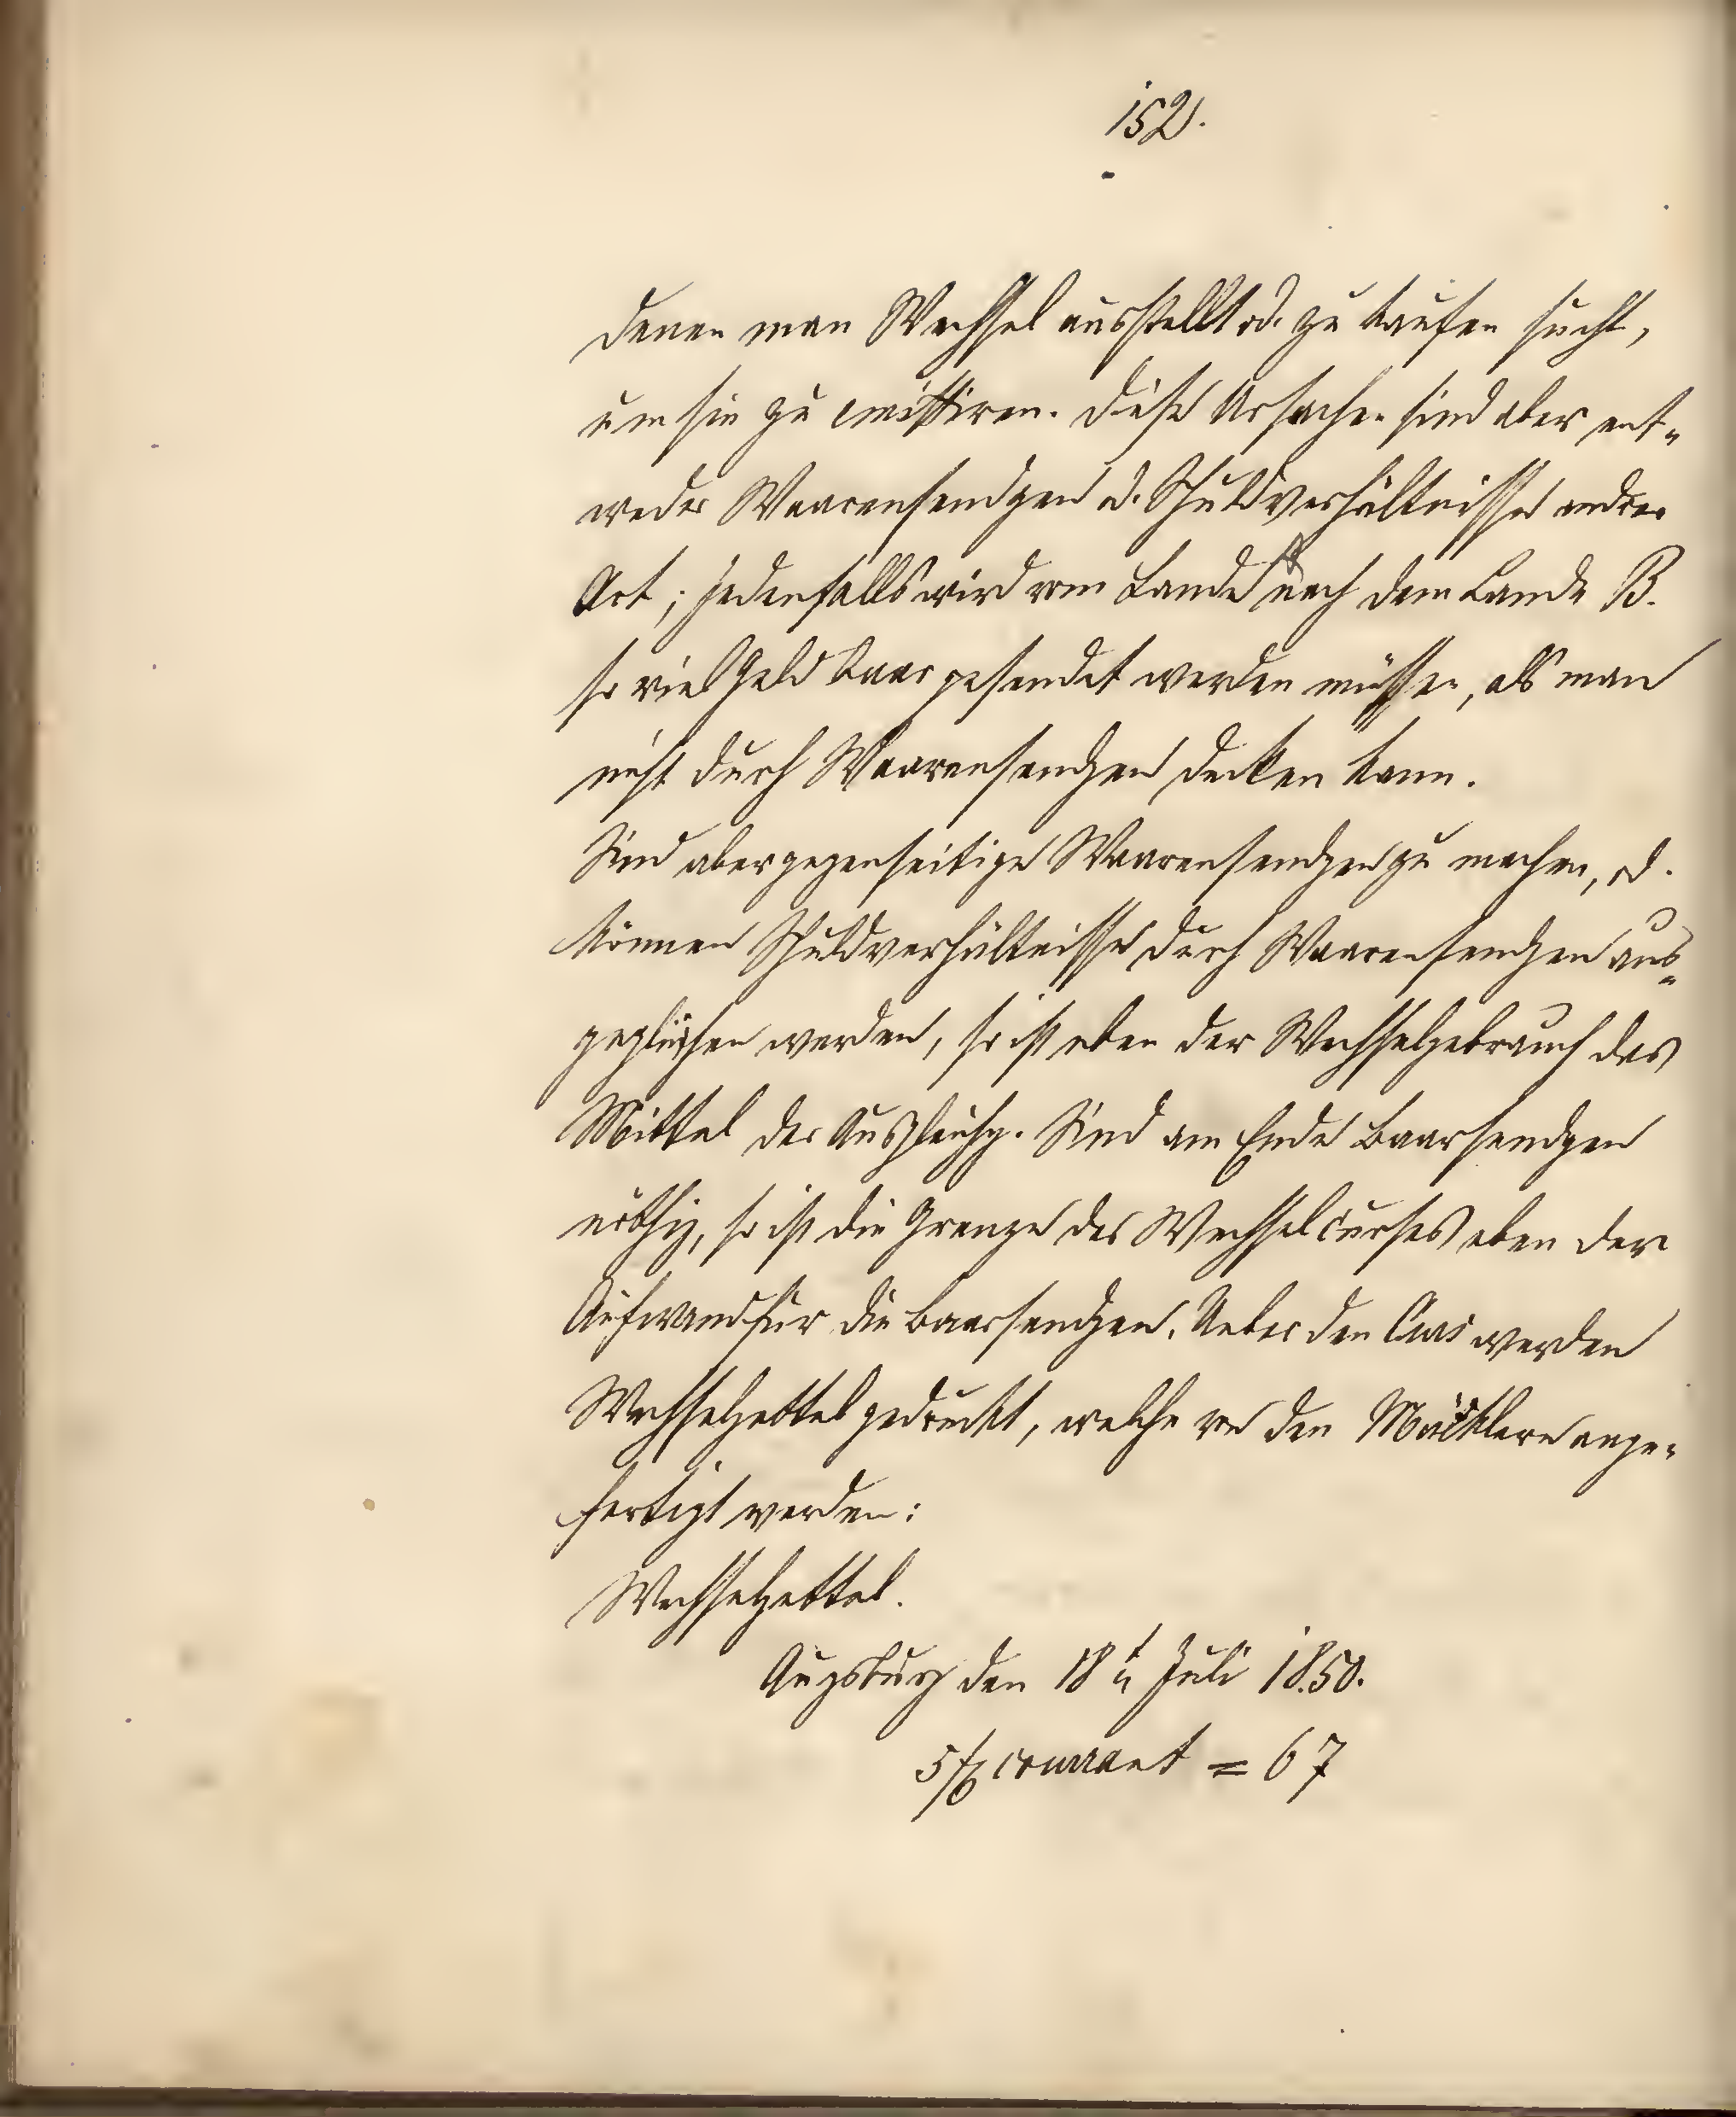 152.
denen man Wechsel ausstellt od. zu kaufen sucht,
um sie zu emittiren. Diese Ursachen sind aber ent-
weder Waarensendgen od. Schuldverhältnisse andrer
Art; jedenfalls wird vom Lande A nach dem Lande B.
so viel Geld baar gesendet werden müssen, als man
nicht durch Waarensendgen decken kann.
Sind aber gegenseitige Waarensendgen zu machen, od.
können Schuldverhältnisse durch Waarensendgen aus-
geglichen werden, so ist eben der Wechselgebrauch das
Mittel der Ausgleichg. Sind am Ende Baarsendgen
nöthig, so ist die Grenze des Wechselcurses eben der
Aufwand für die Baarsendgen. Ueber den Curs werden
Wechselzettel gedruckt, welche von den Mäcklern ange-
fertigt werden:
Wechselzettel.
Augsburg den 18t Juli 1850.
courant = 67